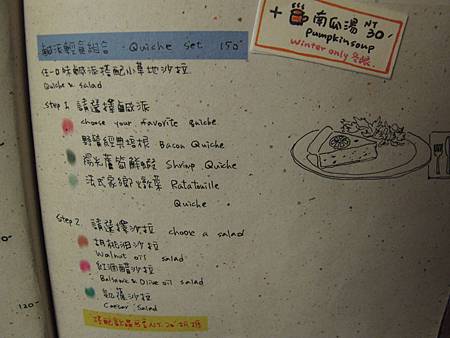 鹹派輕食組合 Quiche set 150-
任一口味鹹派搭配小草地沙拉
Quiche & salad
Step 1. 請選擇鹹派
choose your favorite quiche
野營經典培根 Bacon Quiche
陽光蘆筍鮮蝦 Shrimp Quiche
法式家鄉燉菜 Ratatouille
Quiche
Step 2. 請選擇沙拉 choose a salad
胡桃油沙拉
Walnut oil salad
紅酒醋沙拉
Balsamic & Olive oil salad
凱薩沙拉
Caesar Salad
搭配飲品
+ 南瓜湯 NT 30-
pumpkin soup
Winter only 冬限
120-